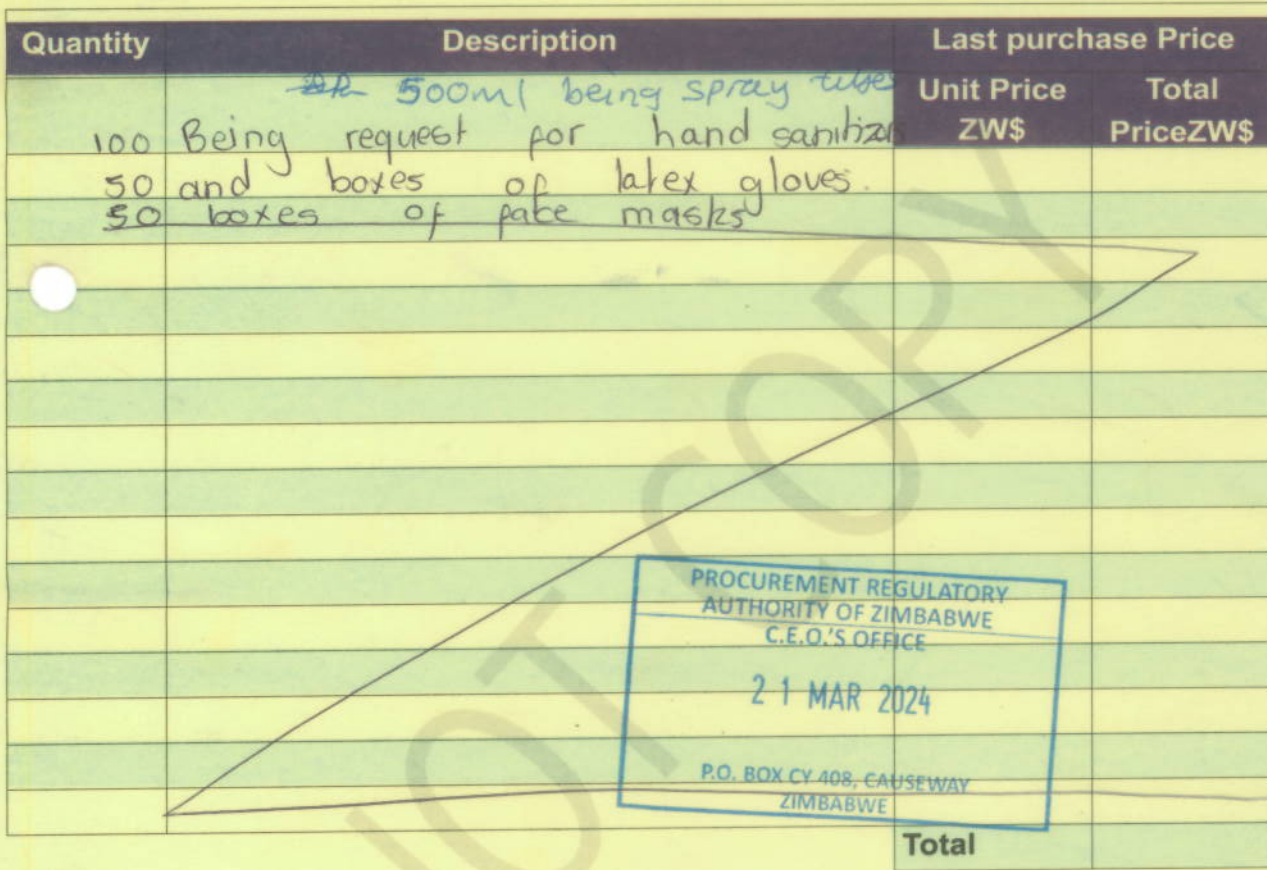 Quantity Description Last purchase Price
Unit Price ZW$ Total PriceZW$
500ml being spray
100 Being request for hand sanitizers
50 and boxes of latex gloves.
50 boxes of face masks
OT COPY
PROCUREMENT REGULATORY
AUTHORITY OF ZIMBABWE
C.E.O.'S OFFICE
21 MAR 2024
P.O. BOX CY 408, CAUSEWAY
ZIMBABWE
Total